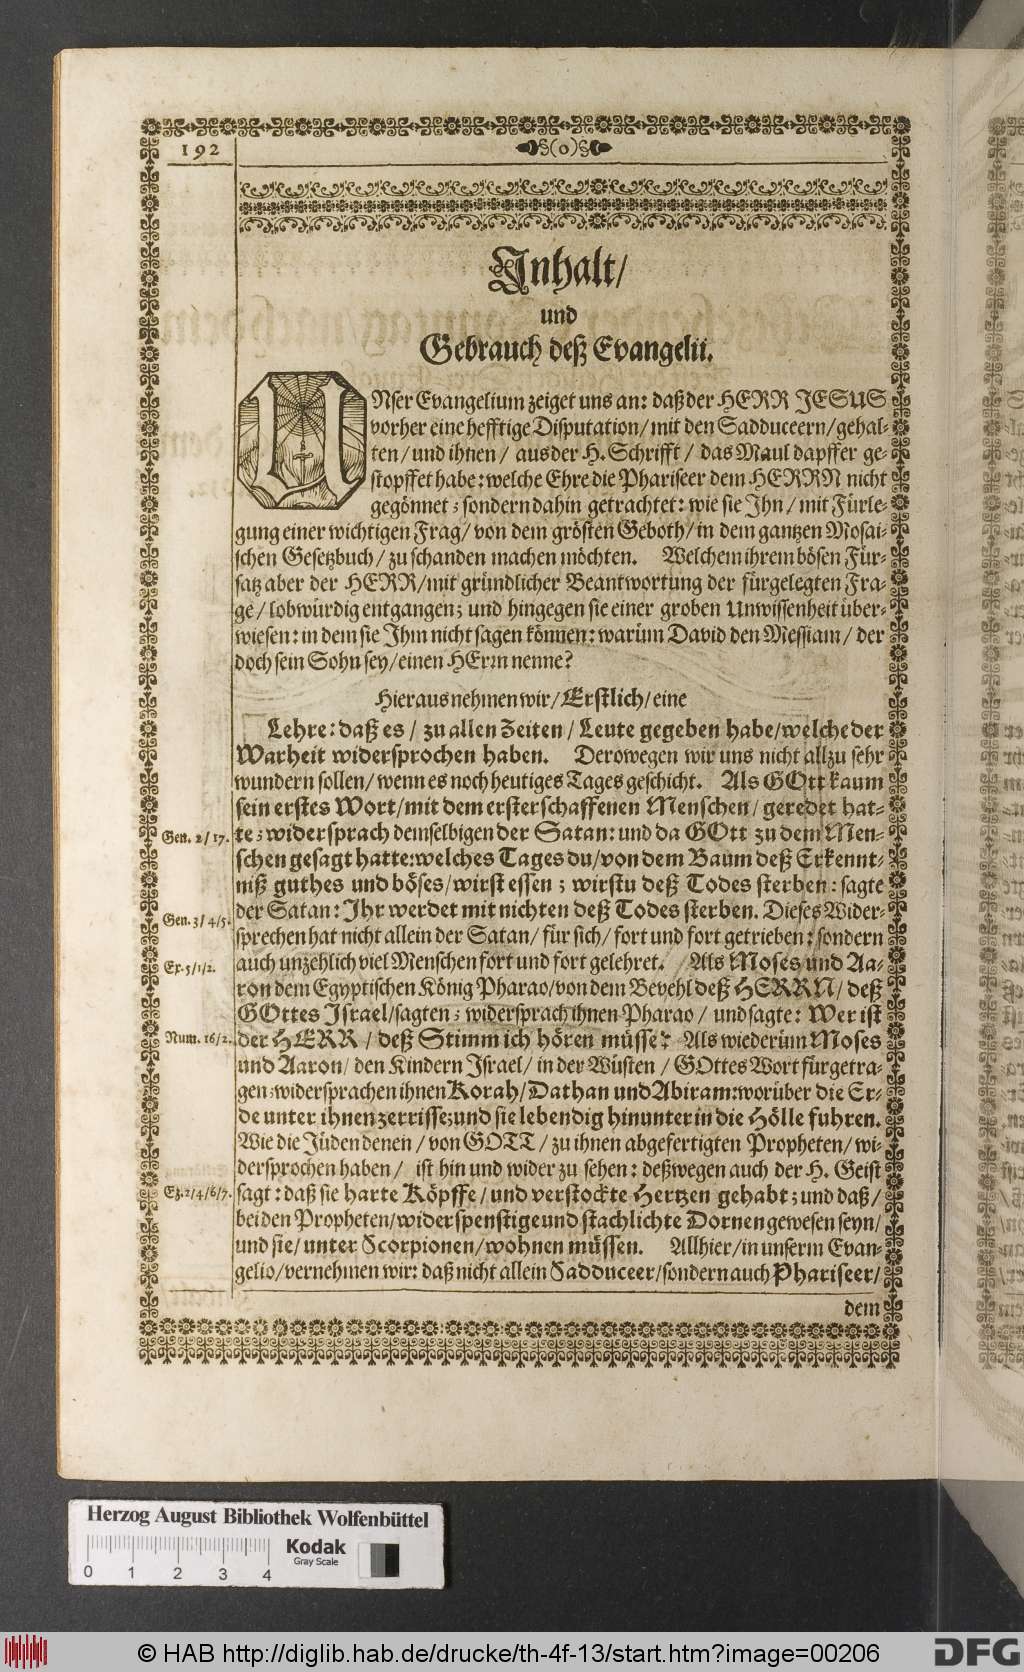 192
(o)
Inhalt/
und
Gebrauch deß Evangelii.
UNser Evangelium zeiget uns an: daß der HERR JESUS
vorher eine hefftige Disputation/ mit den Sadduceern/ gehal-
ten/ und ihnen/ aus der H. Schrifft/ das Maul dapffer ge-
stopffet habe: welche Ehre die Phariseer dem HERRN nicht
gegönnet; sondern dahin getrachtet: wie sie Ihn/ mit Fürle-
gung einer wichtigen Frag/ von dem grösten Geboth/ in dem gantzen Mosai-
schen Gesetzbuch/ zu schanden machen möchten. Welchem ihrem bösen Für-
satz aber der HERR/ mit gründlicher Beantwortung der fürgelegten Fra-
ge/ lobwürdig entgangen; und hingegen sie einer groben Unwissenheit über-
wiesen: in dem sie Ihm nicht sagen können: warüm David den Messiam/ der
doch sein Sohn sey/ einen HErrn nenne?
Hieraus nehmen wir/ Erstlich/ eine
Lehre: daß es/ zu allen Zeiten/ Leute gegeben habe/ welche der
Warheit widersprochen haben. Derowegen wir uns nicht allzu sehr
wundern sollen/ wenn es noch heutiges Tages geschicht. Als GOtt kaum
sein erstes Wort/ mit dem ersterschaffenen Menschen/ geredet hat-
Gen. 2/17. te; widersprach demselbigen der Satan: und da GOtt zu dem Men-
schen gesagt hatte: welches Tages du/ von dem Baum deß Erkennt-
niß guthes und böses/ wirst essen; wirstu deß Todes sterben: sagte
Gen. 3/4/5. der Satan: Ihr werdet mit nichten deß Todes sterben. Dieses Wider-
sprechen hat nicht allein der Satan/ für sich/ fort und fort getrieben; sondern
Ex. 5/1/2. auch unzehlich viel Menschen fort und fort gelehret. Als Moses und Aa-
ron dem Egyptischen König Pharao/ von dem Bevehl deß HERRN/ deß
GOttes Israel/ sagten; widersprach ihnen Pharao/ und sagte: Wer ist
Num. 16/2. der HERR/ deß Stimm ich hören müsse? Als wiederüm Moses
und Aaron/ den Kindern Israel/ in der Wüsten/ GOttes Wort fürgetra-
gen; widersprachen ihnen Korah/ Dathan und Abiram: worüber die Er-
de unter ihnen zerrisse; und sie lebendig hinunter in die Hölle fuhren.
Wie die Jüden denen/ von GOTT/ zu ihnen abgefertigten Propheten/ wi-
dersprochen haben/ ist hin und wider zu sehen: deßwegen auch der H. Geist
Ez. 2/4/6/7. sagt: daß sie harte Köpffe/ und verstockte Hertzen gehabt; und daß/
bei den Propheten/ widerspenstige und stachlichte Dornen gewesen seyn/
und sie/ unter Scorpionen/ wohnen müssen. Allhier/ in unserm Evan-
gelio/ vernehmen wir: daß nicht allein Sadduceer/ sondern auch Phariseer/
dem
Herzog August Bibliothek Wolfenbüttel
Kodak
Gray Scale
0 1 2 3 4
© HAB http://diglib.hab.de/drucke/th-4f-13/start.htm?image=00206
DFG